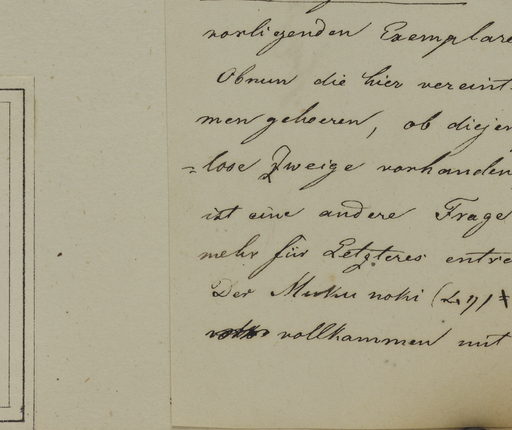 vorligenden Exemplare
Obnun die hier vereint
men gehoeren, ob diejen
=lose Zweige vorhanden
ist eine andere Frage
mehr für Letzteres entre
Der Muku noki (
vollkammen mit